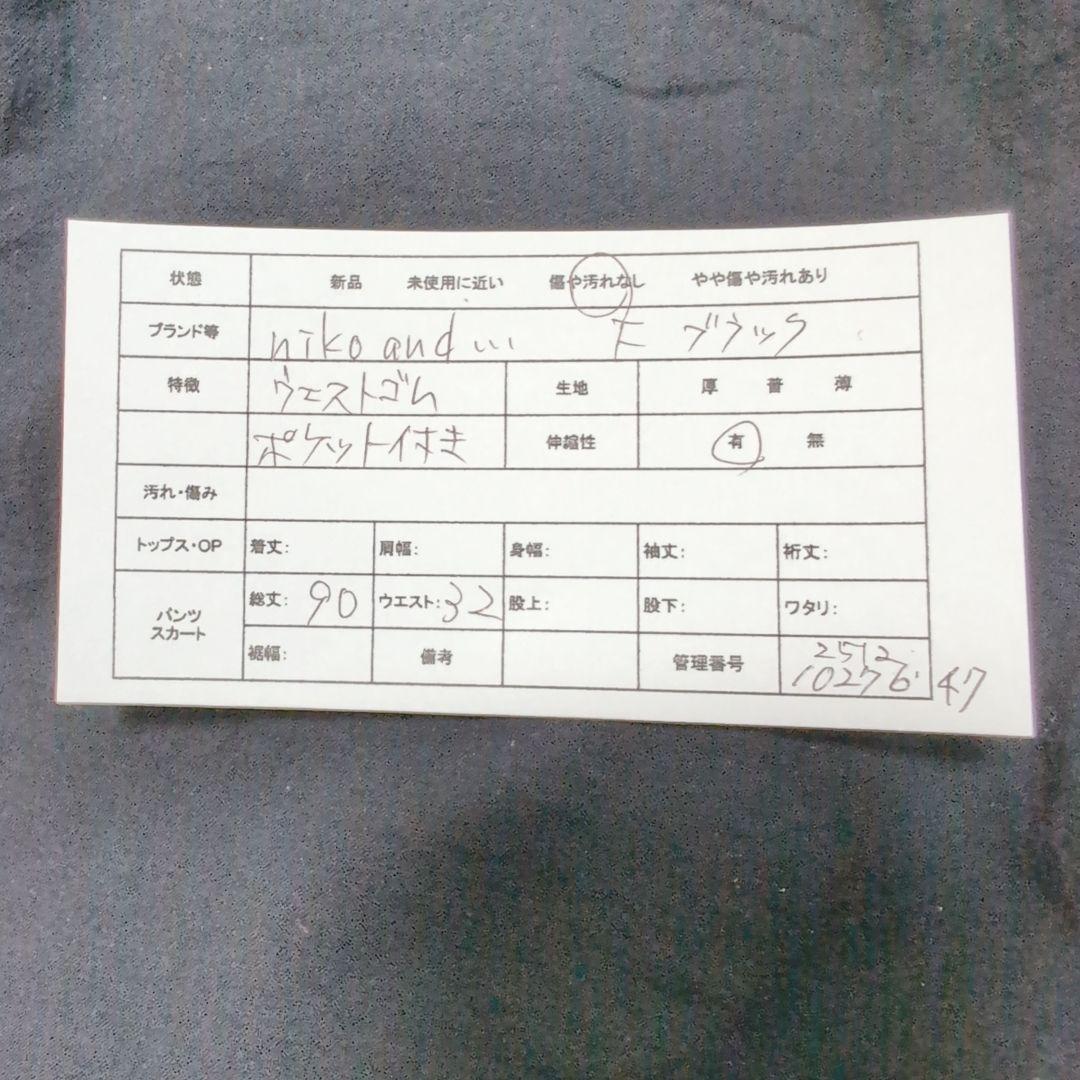 状態 新品 未使用に近い 傷や汚れなし やや傷や汚れあり
ブランド等 niko and ... F ブラック
特徴 ウエストゴム 生地 厚 普 薄
ポケット付き 伸縮性 有 無
汚れ・傷み
トップス・OP 着丈: 肩幅: 身幅: 袖丈: 裄丈:
パンツ
スカート
総丈: 90 ウエスト: 32 股上: 股下: ワタリ:
裾幅: 備考 管理番号
2512
10276 47